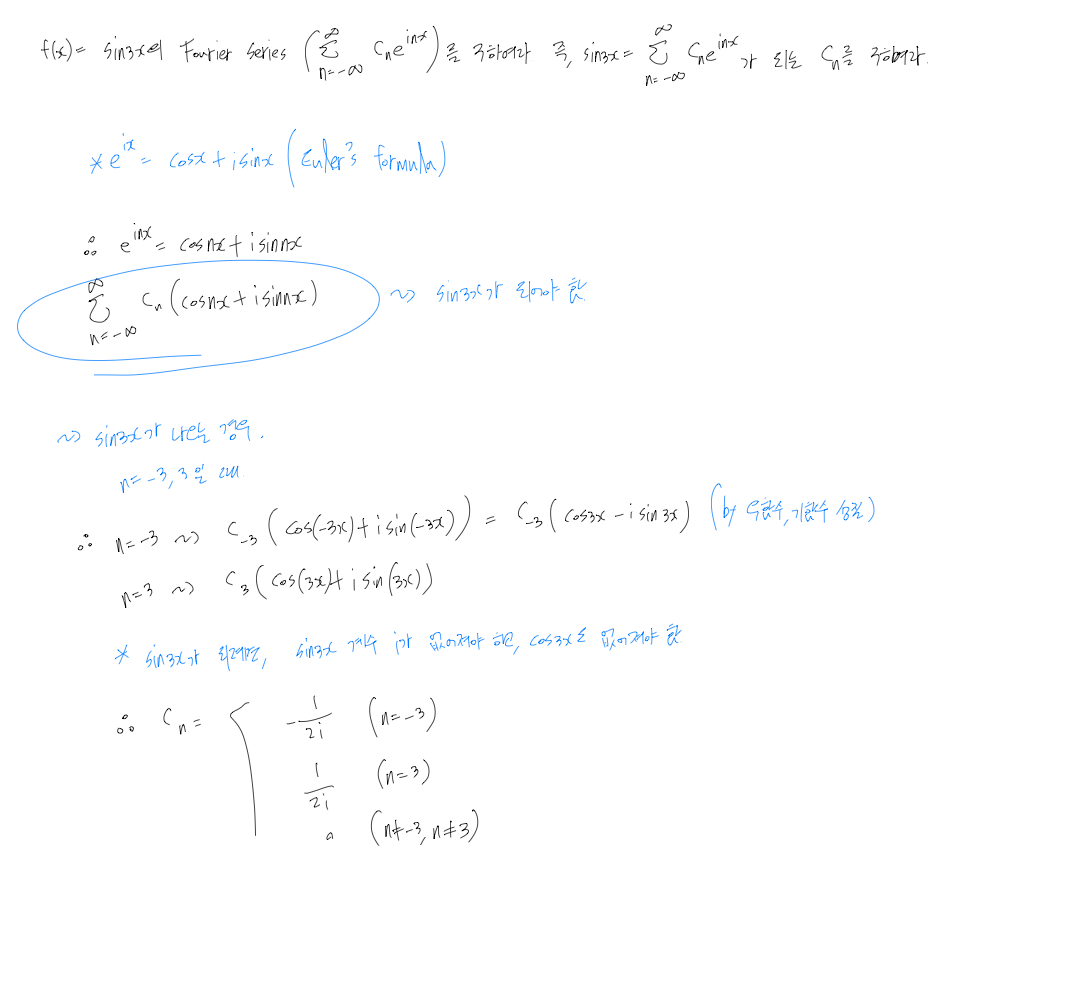 f(x) = sin3x의 Fourier Series (∑_{n=-∞}^{∞} C_n e^{inx})를 구하여라 즉, sin3x = ∑_{n=-∞}^{∞} C_n e^{inx}가 되는 C_n를 구하여라.
* e^{ix} = cosx + isinx (Euler's formula)
∴ e^{inx} = cosnx + isinnx
∑_{n=-∞}^{∞} C_n (cosnx + isinnx) ~> sin3x가 되어야 함
~> sin3x가 나타날 경우.
n = -3, 3일 때
∴ n=-3 ~> C_{-3} (cos(-3x) + isin(-3x)) = C_{-3} (cos3x - isin3x) (by 우함수, 기함수 성질)
n=3 ~> C_3 (cos(3x) + isin(3x))
* sin3x가 되려면, sin3x 계수 i가 없어져야 하고, cos3x도 없어져야 함
∴ C_n = { -1/2i (n=-3)
1/2i (n=3)
0 (n≠-3, n≠3)